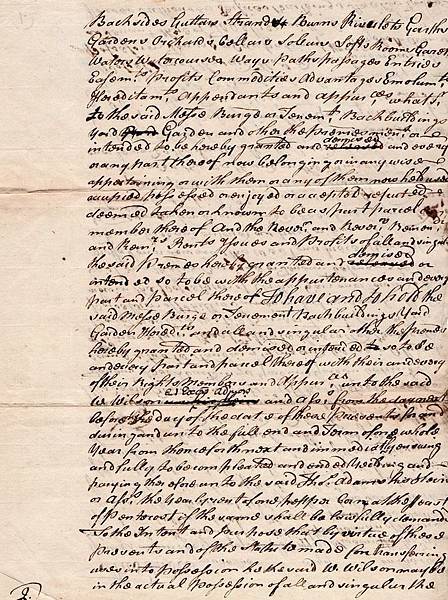 Backsides Gutters Strands Burns Rivulets Garths
Gardens Orchards Cellars Sollars Lofts Rooms
Waters Watercourses Ways paths passages Entries
Easemts Profits Commodities Advantages Emolumts
Hereditamts Appendants and Appurces whats
to the said Messe Burge or Tenemt Backbuildings
Yard Garden and other the premes ment or
intended to be hereby granted and demised and every
or any part thereof now belonging or in any wise
appertaining or with them or any of them now held used
occupied possessed or enjoyed or accepted reputed
deemed taken or known to be as part parcel or
member thereof And the Rever and Revers Remer
and Remrs Rents Issues and Profits of all and singular
the said Premes hereby granted and demised or
intended so to be with the appurtenances and every
part and parcel thereof To have and to hold the
said Messe Burge or Tenement Backbuildings Yard
Garden Heredts and all and singular other the premes
hereby granted and demised or intended so to be
and every part and parcel thereof with their and every
of their Rights Members and Appurces unto the said
W. Wilson his Exors Admrs and Ass from the day next
before the day of the date of these presents for and
during and unto the full end and Term of one whole
Year from thenceforth next and immediatly ensuing
and fully to be compleated and ended Yeilding and
paying therefore unto the said Thos. Adams his Heirs
or Ass the Year Rent of one pepper Corn at the Feast
of Pentecost if the same shall be lawfully demand
To the Intent and purpose that by virtue of these
presents and of the Statute made for transferring
uses into possession he the said W. Wilson may be
in the actual Possession of all and singular the
2